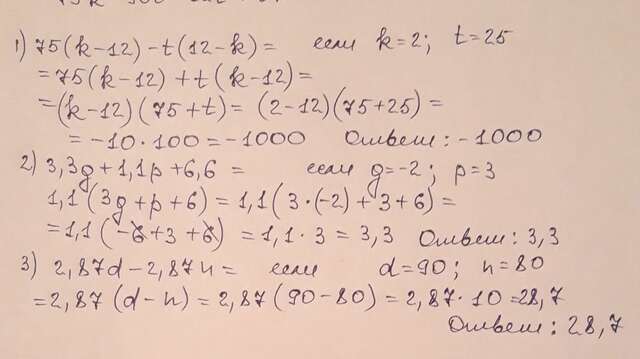 1) 75(k-12)-t(12-k)= если k=2; t=25
=75(k-12)+t(k-12)=
=(k-12)(75+t)= (2-12)(75+25)=
=-10·100=-1000 Ответ: -1000
2) 3,3g+1,1p+6,6= если g=-2; p=3
1,1(3g+p+6)=1,1(3·(-2)+3+6)=
=1,1(-6+3+6)=1,1·3=3,3 Ответ: 3,3
3) 2,87d-2,87n= если d=90; n=80
=2,87(d-n)=2,87(90-80)=2,87·10=28,7
Ответ: 28,7